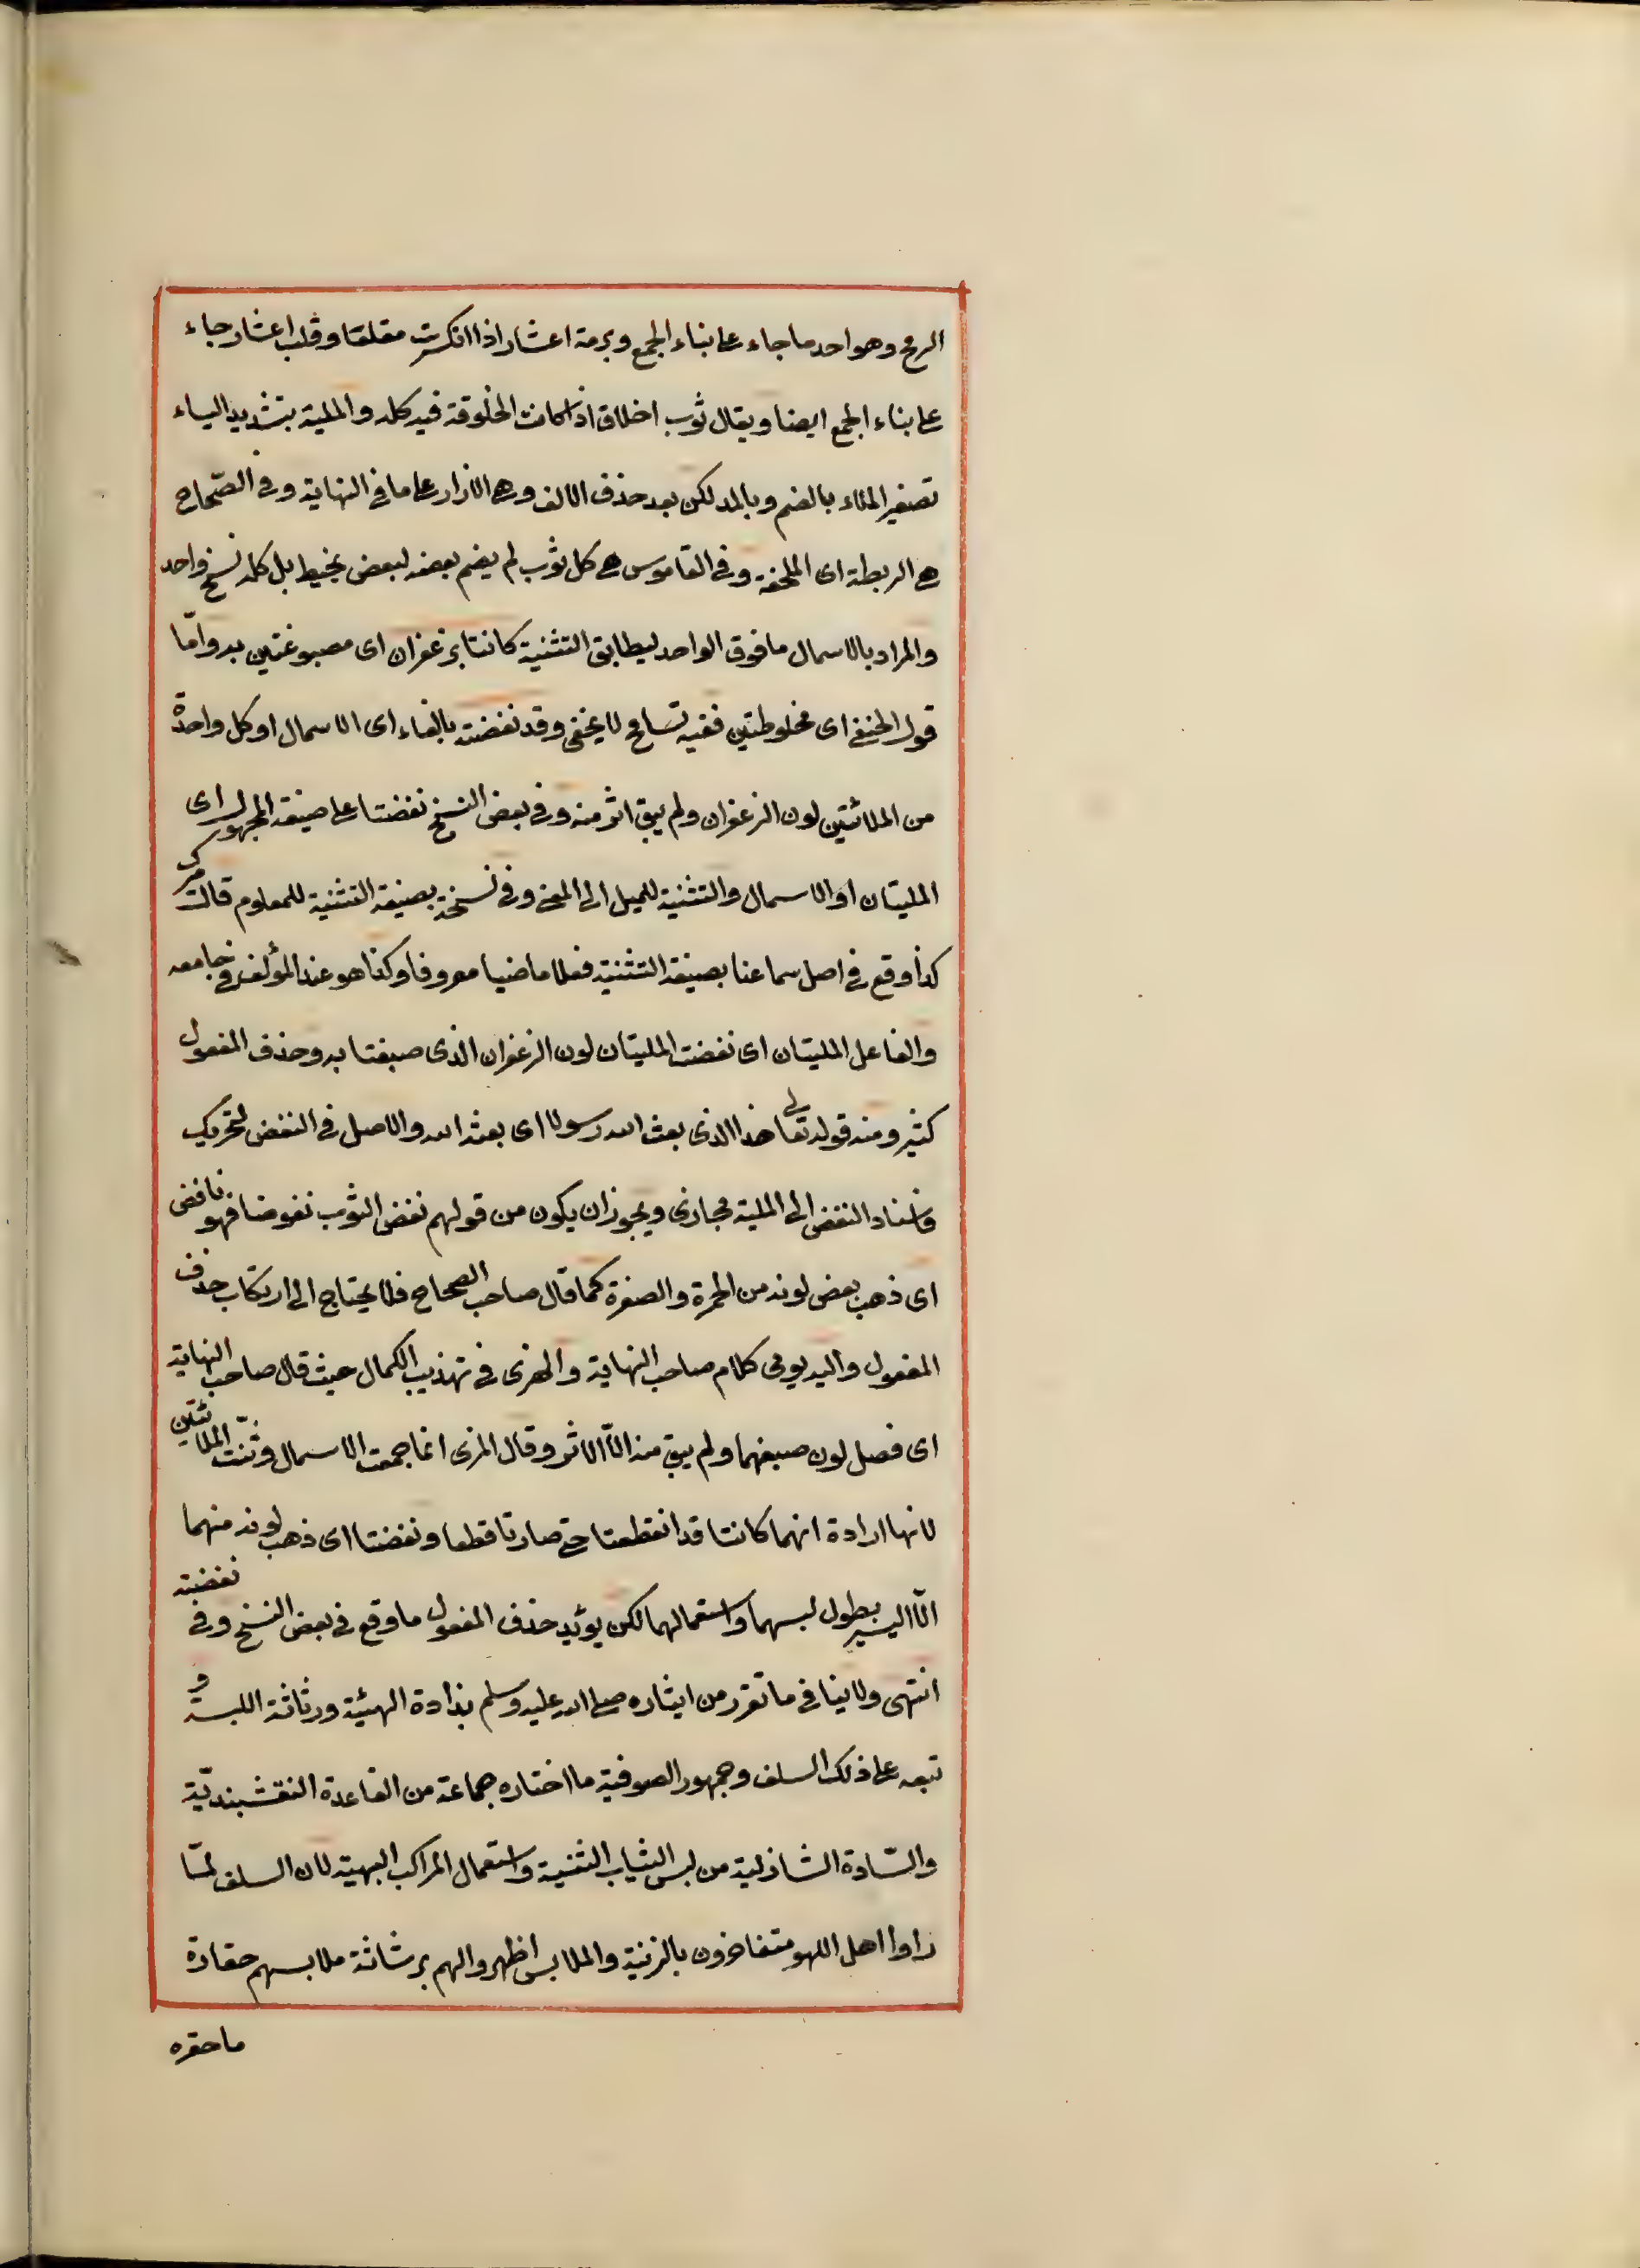 الرمح وهو احد ما جاء على بناء الجمع وبرمة اعشار اذا انكسرت مقلقا وقلب اعشار جاء
على بناء الجمع ايضا ويقال ثوب اخلاق اذا كانت الخلوقة فيه كله والملية بتشديد الياء
تصغير الملاء بالضم وبالمد لكن بعد حذف الالف وهى الازار على ما فى النهاية وفى الصّحاح
هى الريطة اى الملحفة وفى القاموس هى كل ثوب لم يضم بعضه لبعض بخيط بل كله نسخ واحد
والمراد بالاسمال ما فوق الواحد ليطابق التثنية كانتا بزعفران اى مصبوغتين به وامّا
قول الحنفى اى مخلوطتين ففيه تسامح لا يخفى وقد نفضته بالفاء اى الاسمال او كل واحدة
من الملائتين لون الزعفران ولم يبق اثر منه وفى بعض النسخ نفضتا على صيغة المجهول اى
المليتان او الاسمال والتثنية للميل الى المعنى وفى نسخة بصيغة التثنية للمعلوم قال ميرك
كذا وقع فى اصل سماعنا بصيغة التثنية فعلا ماضيا معروفا وكذا هو عند المؤلف فى جامعه
والفاعل المليتان اى نفضت المليتان لون الزعفران الذى صبغتا به وحذف المفعول
كثير ومنه قوله تعالى هذا الذى بعث الله رسولا اى بعثه الله والاصل فى النفض التحريك
واسناد النفض الى الملية مجازى ويجوز ان يكون من قولهم نفض الثوب نفوضا فهو نافض
اى ذهب بعض لونه من الحمرة والصفرة كما قال صاحب الصحاح فلا يحتاج الى ارتكاب حذف
المفعول واليه يومى كلام صاحب النهاية والمزى فى تهذيب الكمال حيث قال صاحب النهاية
اى فصل لون صبغهما ولم يبق منه الّا الاثر وقال المزى انما جمعت الاسمال وثنّت الملائتين
لانها ارادة انهما كانتا قد انقطعتا حتى صارتا قطعا ونفضتا اى ذهب لونه منهما
الّا اليسير بطول لبسهما واستعمالهما لكن يؤيد حذف المفعول ما وقع فى بعض النسخ وفى نفضته
انتهى ولا ينافى ما تقرر من ايثاره صلى الله عليه وسلم بذاذة الهيئة ورثاثة اللبسة و
تبعه على ذلك السلف وجمهور الصوفية ما اختاره جماعة من القاعدة النقشبنديّة
والسّادة الشاذلية من لبس الثياب الثمنية واستعمال المراكب البهية لان السلف لمّا
راوا اهل اللهو متفاخرون بالزينة والملابس اظهروا لهم برثاثة ملابسهم حقارة
ما حقره